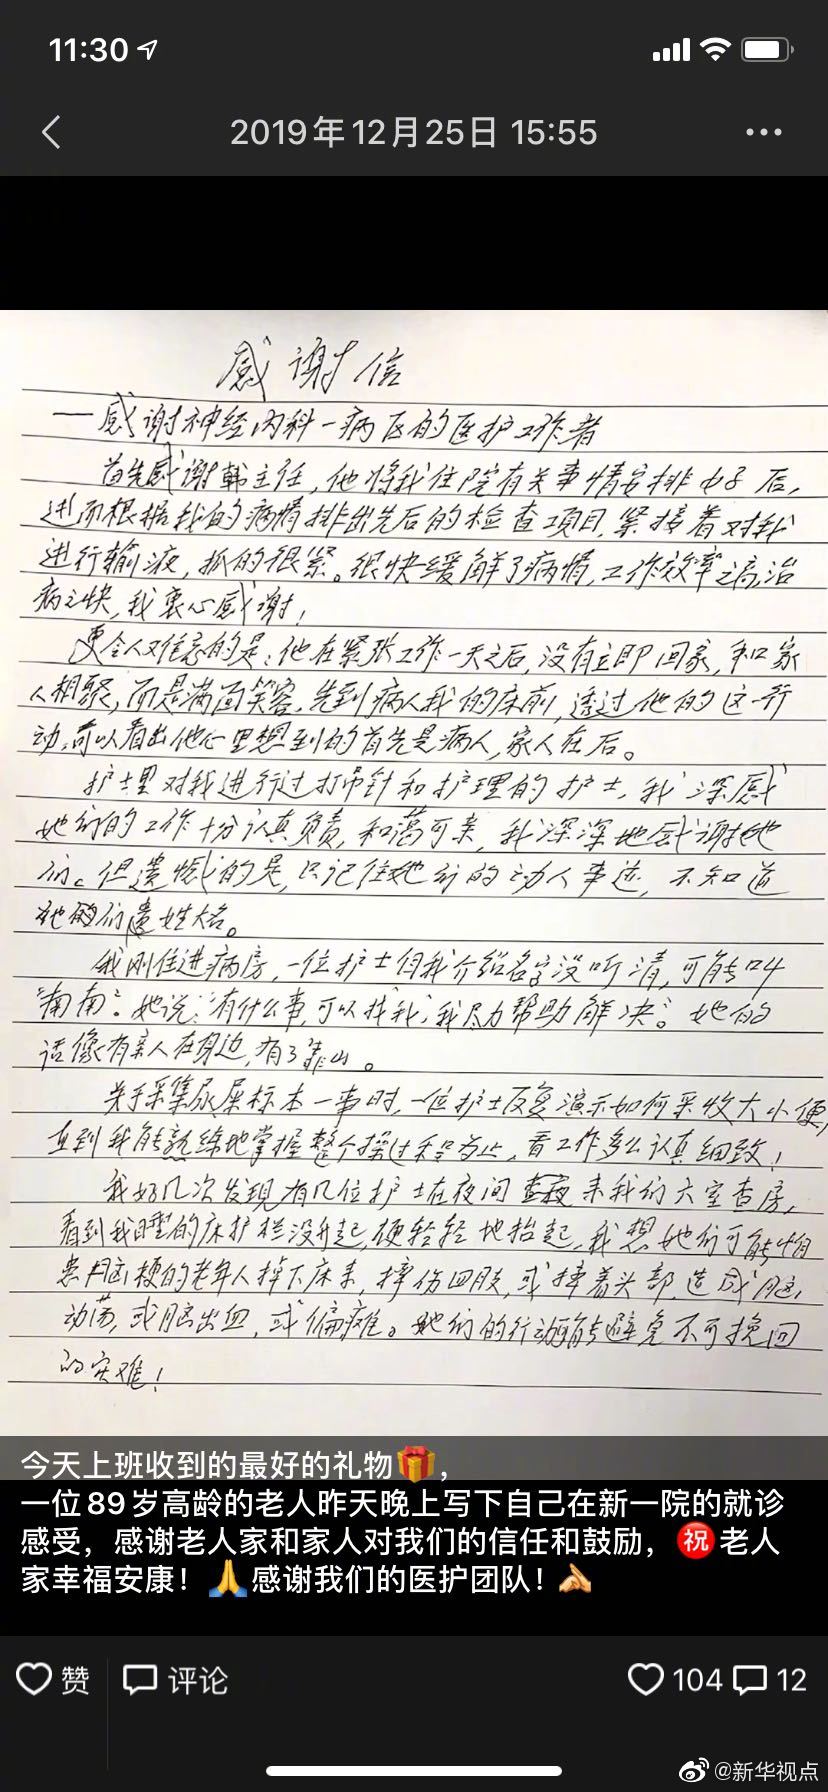 11:30
2019年12月25日 15:55
感谢信
一感谢神经内科一病区的医护工作者
首先感谢韩主任,他将我住院有关事情安排好后,
进而根据我的病情排出先后的检查项目,紧接着对我
进行输液,抓的很紧。很快缓解了病情,工作效率之高,治
病之快,我衷心感谢!
更令人难忘的是:他在紧张工作一天之后,没有立即回家,和家
人相聚,而是满面笑容,先到病人我的床前,透过他的这一行
动,可以看出他心里想到的首先是病人,家人在后。
护士里对我进行过打吊针和护理的护士,我深感
她们的工作十分认真负责,和蔼可亲,我深深地感谢她
们。但遗憾的是,只记住她们的动人事迹,不知道
她们姓名。
我刚住进病房,一位护士向我介绍名字没听清,可能叫
“南南”。她说:“有什么事,可以找我,我尽力帮助解决”。她的
话像有亲人在身边,有了靠山。
关于采集尿屎标本一事时,一位护士反复演示如何采收大小便,
直到我能熟练地掌握整个操过程为止,看工作多么认真细致!
我好几次发现有几位护士在夜间来我们六室查房,
看到我睡的床护栏没升起,便轻轻地抬起,我想她们可能怕
患脑梗的老年人掉下床来,摔伤四肢,或摔着头部,造成脑
动荡,或脑出血,或偏瘫。她们的行动能避免不可挽回
的灾难!
今天上班收到的最好的礼物🎁,
一位89岁高龄的老人昨天晚上写下自己在新一院的就诊
感受,感谢老人家和家人对我们的信任和鼓励,㊗️老人
家幸福安康!🙏感谢我们的医护团队!👏🏻
赞 评论 104 12
@新华视点